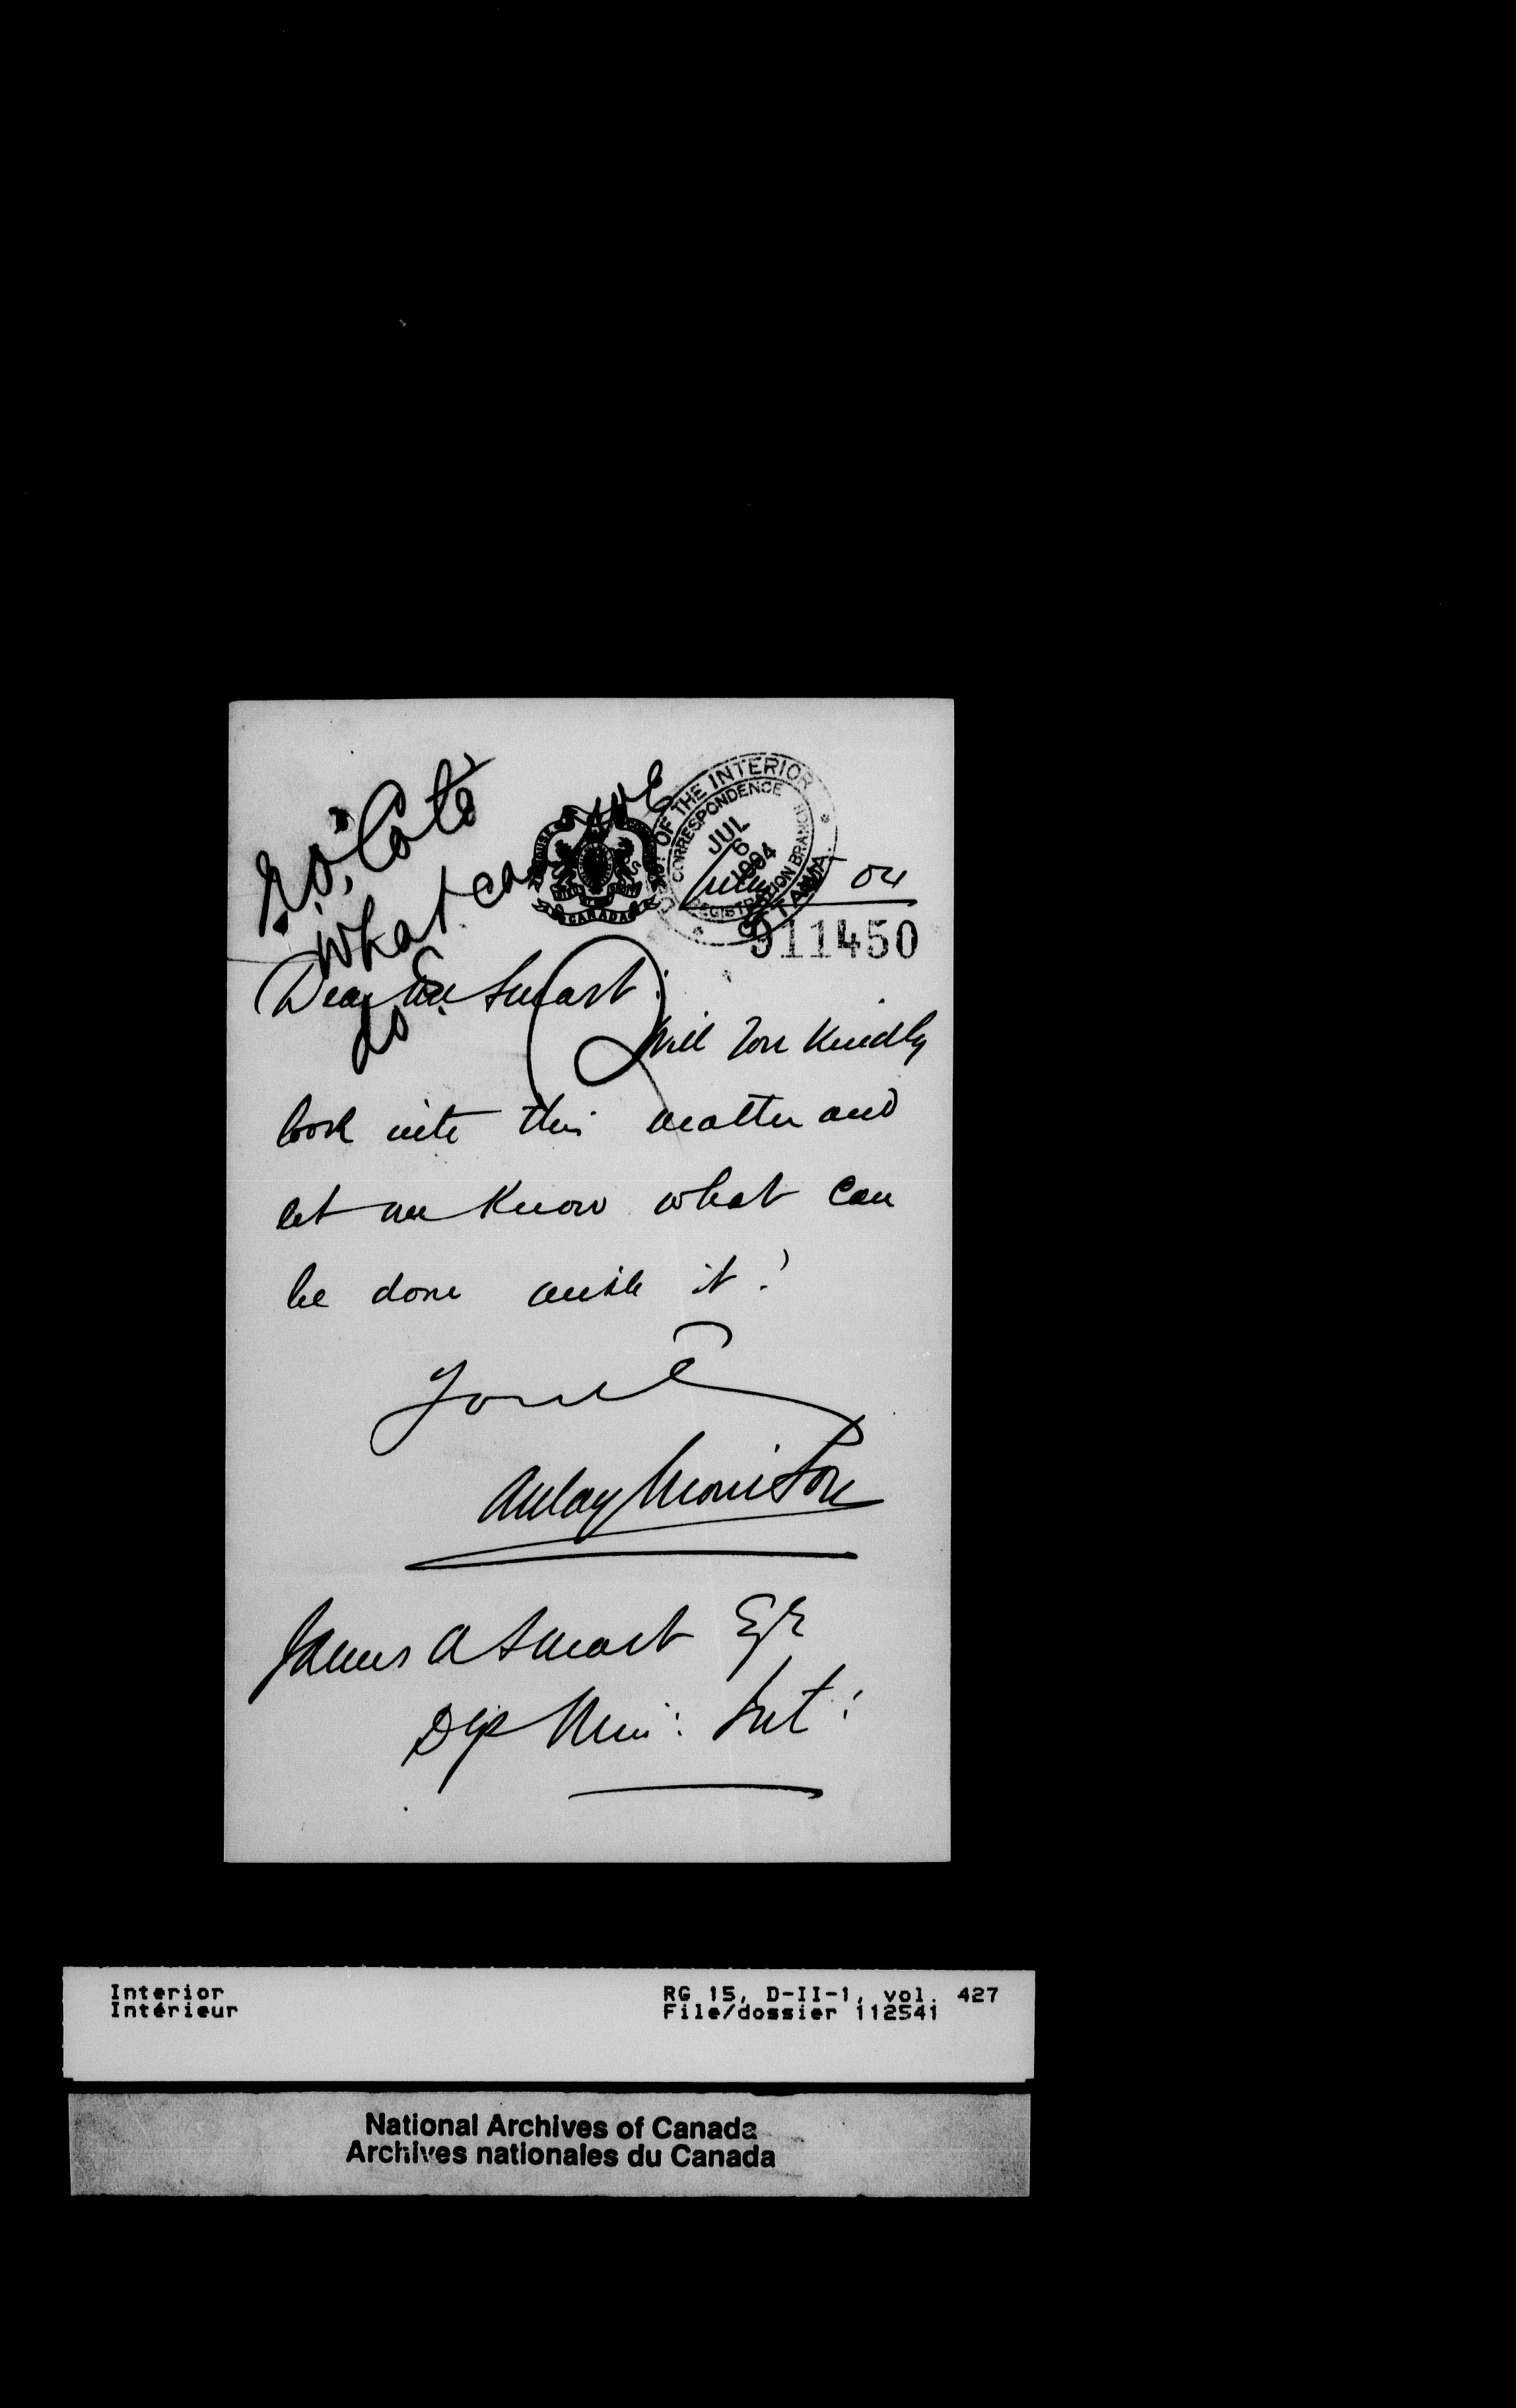 Mr. Coté
What can we
do?
HOUSE OF COMMONS
CANADA
DEPT. OF THE INTERIOR
CORRESPONDENCE
JUL
6
1904
REGISTRATION BRANCH
OTTAWA.
04
911450
Dear Mr Smart:
Will you kindly
look into this matter and
let me know what can
be done with it?
Yours
Aulay Morrison
James A Smart Esq
Dep Min: Int:
Interior
Intérieur
RG 15, D-II-1, vol. 427
File/dossier 112541
National Archives of Canada
Archives nationales du Canada